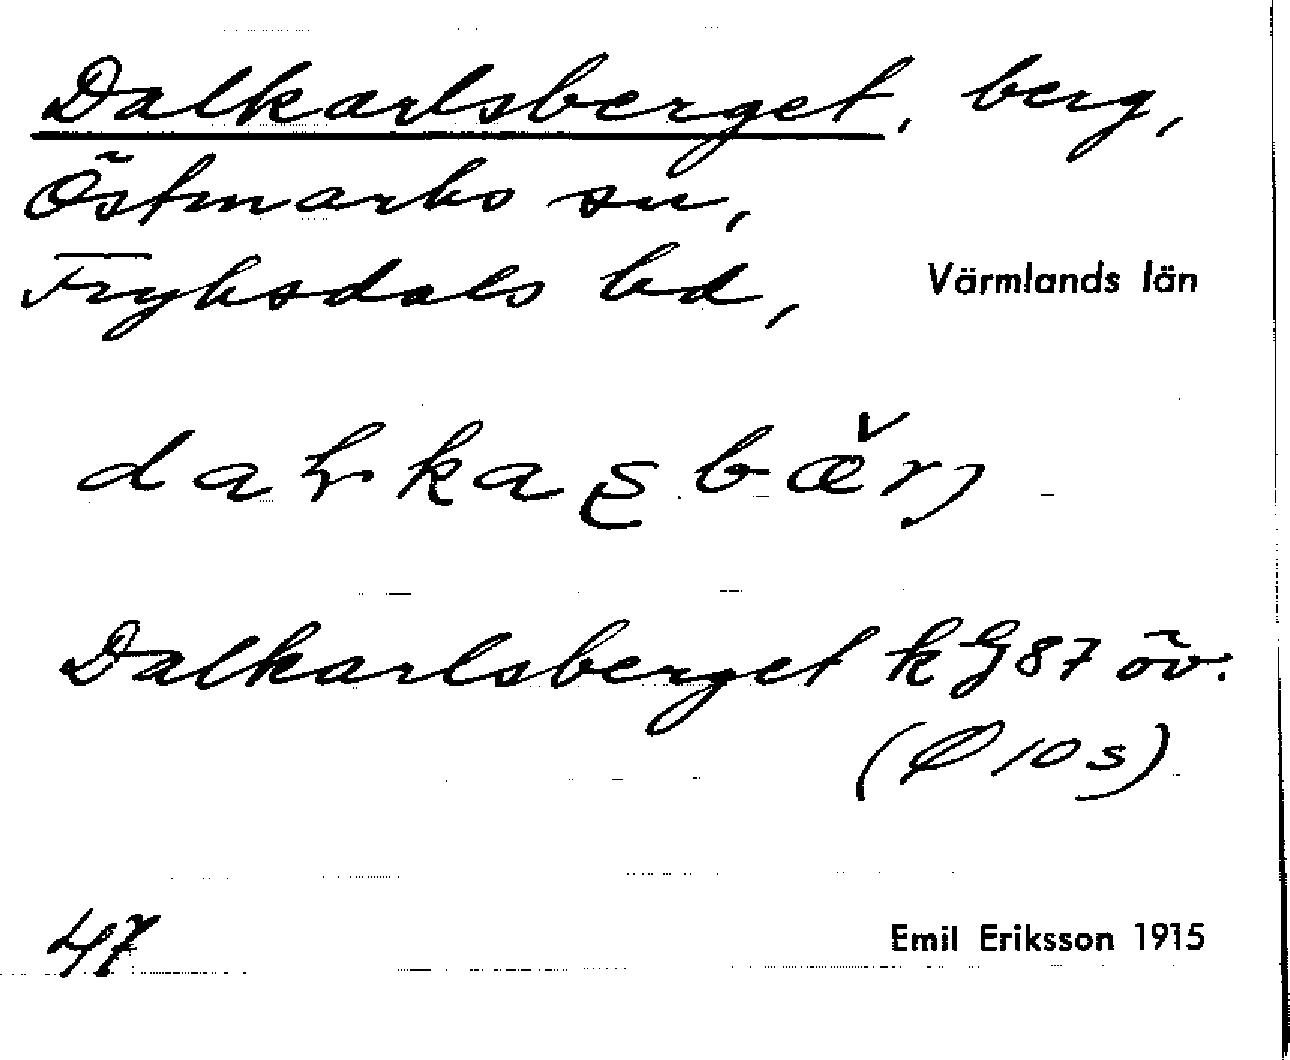 Dalkarlsberget, berg,
Östmarks sn,
Fryksdals hd, Värmlands län
daɫkaʂbæ̌rj
Dalkarlsberget kG87 öv.
(Ø 10 s)
47
Emil Eriksson 1915